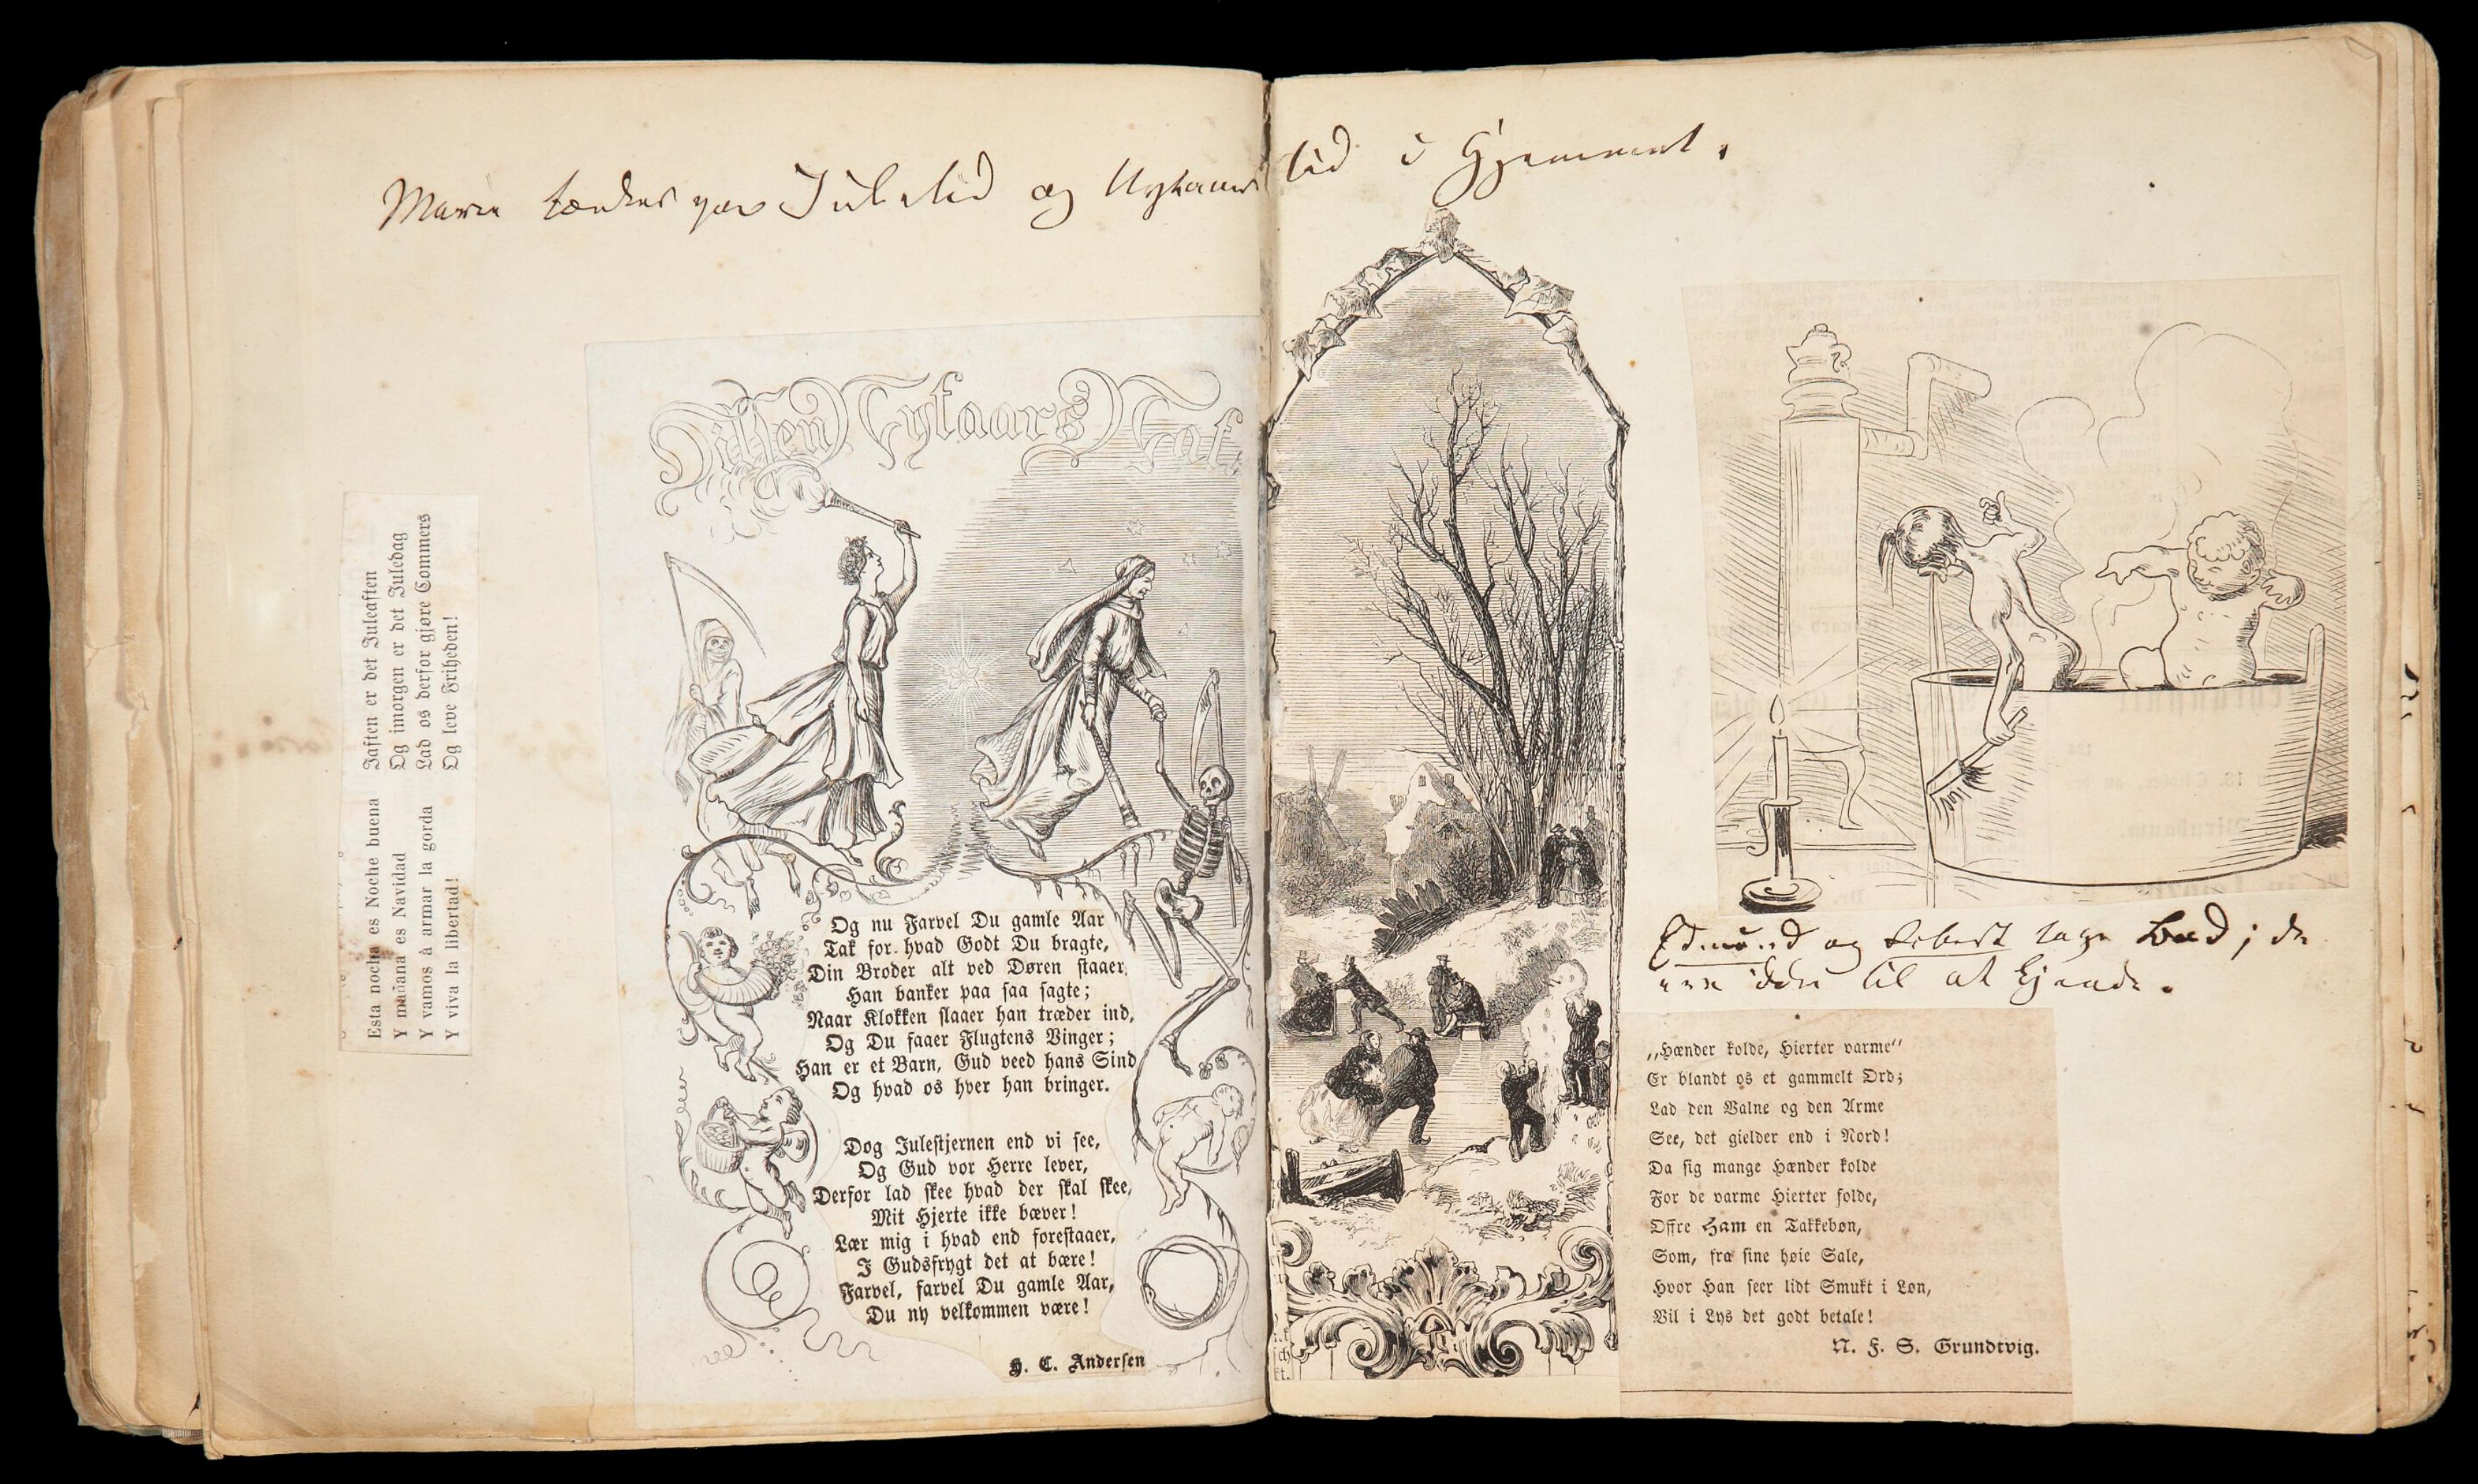 Marie tænker paa Juletid og Nytaarstid i Hjemmet.
Esta noche es Noche buena
Y mañana es Navidad
Y vamos à armar la gorda
Y viva la libertad!
Iaften er det Juleaften
Og imorgen er det Juledag
Lad os derfor gjøre Commers
Og leve Friheden!
Nytaars Nat.
Og nu Farvel Du gamle Aar
Tak for hvad Godt Du bragte,
Din Broder alt ved Døren staaer,
Han banker paa saa sagte;
Naar Klokken slaaer han træder ind,
Og Du faaer Flugtens Vinger;
Han er et Barn, Gud veed hans Sind
Og hvad os hver han bringer.
Dog Julestjernen end vi see,
Og Gud vor Herre lever,
Derfor lad skee hvad der skal skee,
Mit Hjerte ikke bæver!
Lær mig i hvad end forestaaer,
I Gudsfrygt det at bære!
Farvel, farvel Du gamle Aar,
Du ny velkommen være!
H. C. Andersen
Edmund og tage Bad; de
ere ikke til at kjende.
„Hænder kolde, Hierter varme“
Er blandt os et gammelt Ord;
Lad den Valne og den Arme
See, det gielder end i Nord!
Da sig mange Hænder kolde
For de varme Hierter folde,
Offre Ham en Takkebøn,
Som, fra sine høie Sale,
Hvor Han seer lidt Smukt i Løn,
Vil i Lys det godt betale!
N. F. S. Grundtvig.